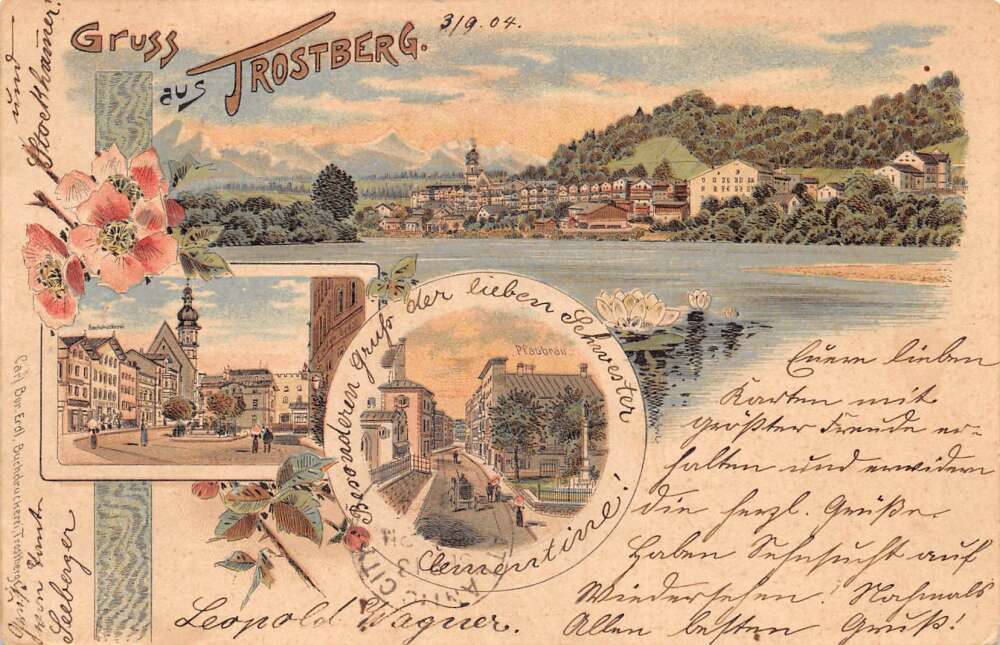 Gruss
aus TROSTBERG.
3/9.04.
und
Stockhamer!
Buchdruckerei
Pfaubräu
Besonderen Gruß der lieben Schwester
Clementine!
Euere lieben
Karten mit
größter Freude er-
halten und erwidern
die herzl. Grüße.
Haben Sehnsucht auf
Wiedersehen! Nochmals
Allen besten Gruß!
Leopold Wagner.
Carl Bon. Erdl, Buchdruckerei, Trostberg.
Gruß
von
Seeberger